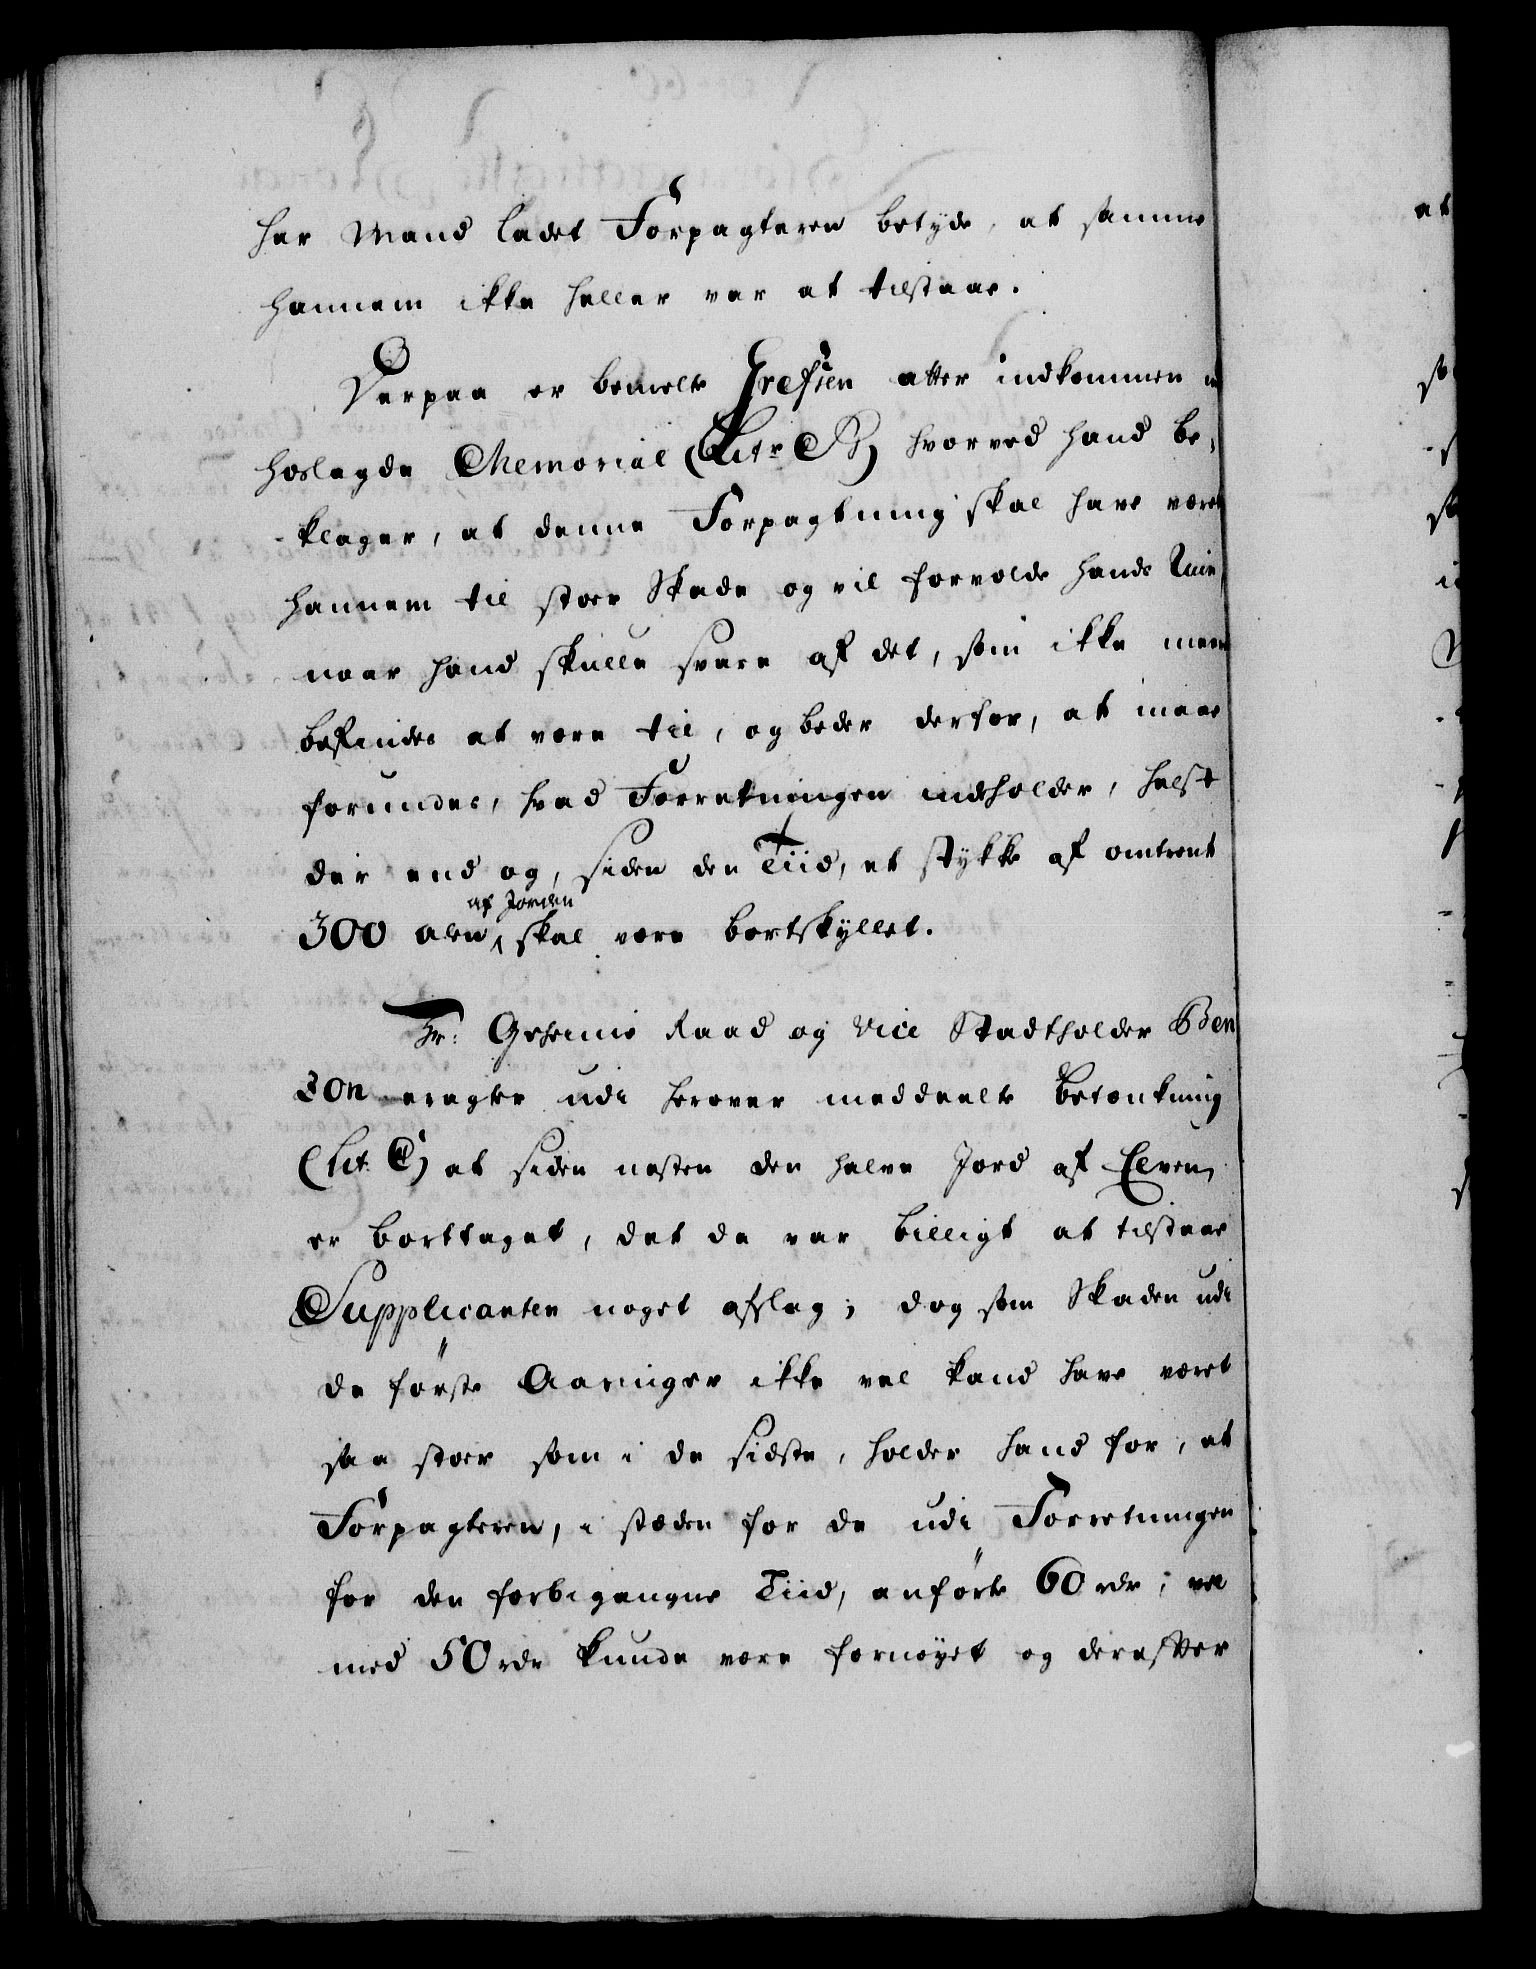 har Mand ladet Forpagteren betyde, at samme
hannem ikke heller var at tilstaae.
Derpaa er bemelte Grefsen atter indkommen
hoslagde Memorial (Litr B) hvorved hand be-
klager, at denne Forpagtning skal have været
hannem til stoer Skade og vil forvolde hands Ruin,
naar hand skulle svare af det, som ikke meer
befindes at være til, og beder derfor, at maae
forundes, hvad Forretningen indeholder, helst
der end og, siden den Tiid, et stykke af omtrent
300 alen, af Jorden skal være bortskyllet.
Hr: Geheime Raad og Vice Stadtholder Ben
zon eragter udi herover meddeelte Betænkning
(Lit: C) at siden næsten den halve Jord af Elven,
er borttaget, det da var billigt at tilstaae
Supplicanten noget afslag; dog som Skaden udi
de förste Aaringer ikke vel kand have været
saa stoer som i de sidste, holder hand for, at
Forpagteren, i stæden for de udi Forretningen
for den forbigangne Tiid, anförte 60 rdr; vel
med 50 rdr kunde være fornöyet og derefter